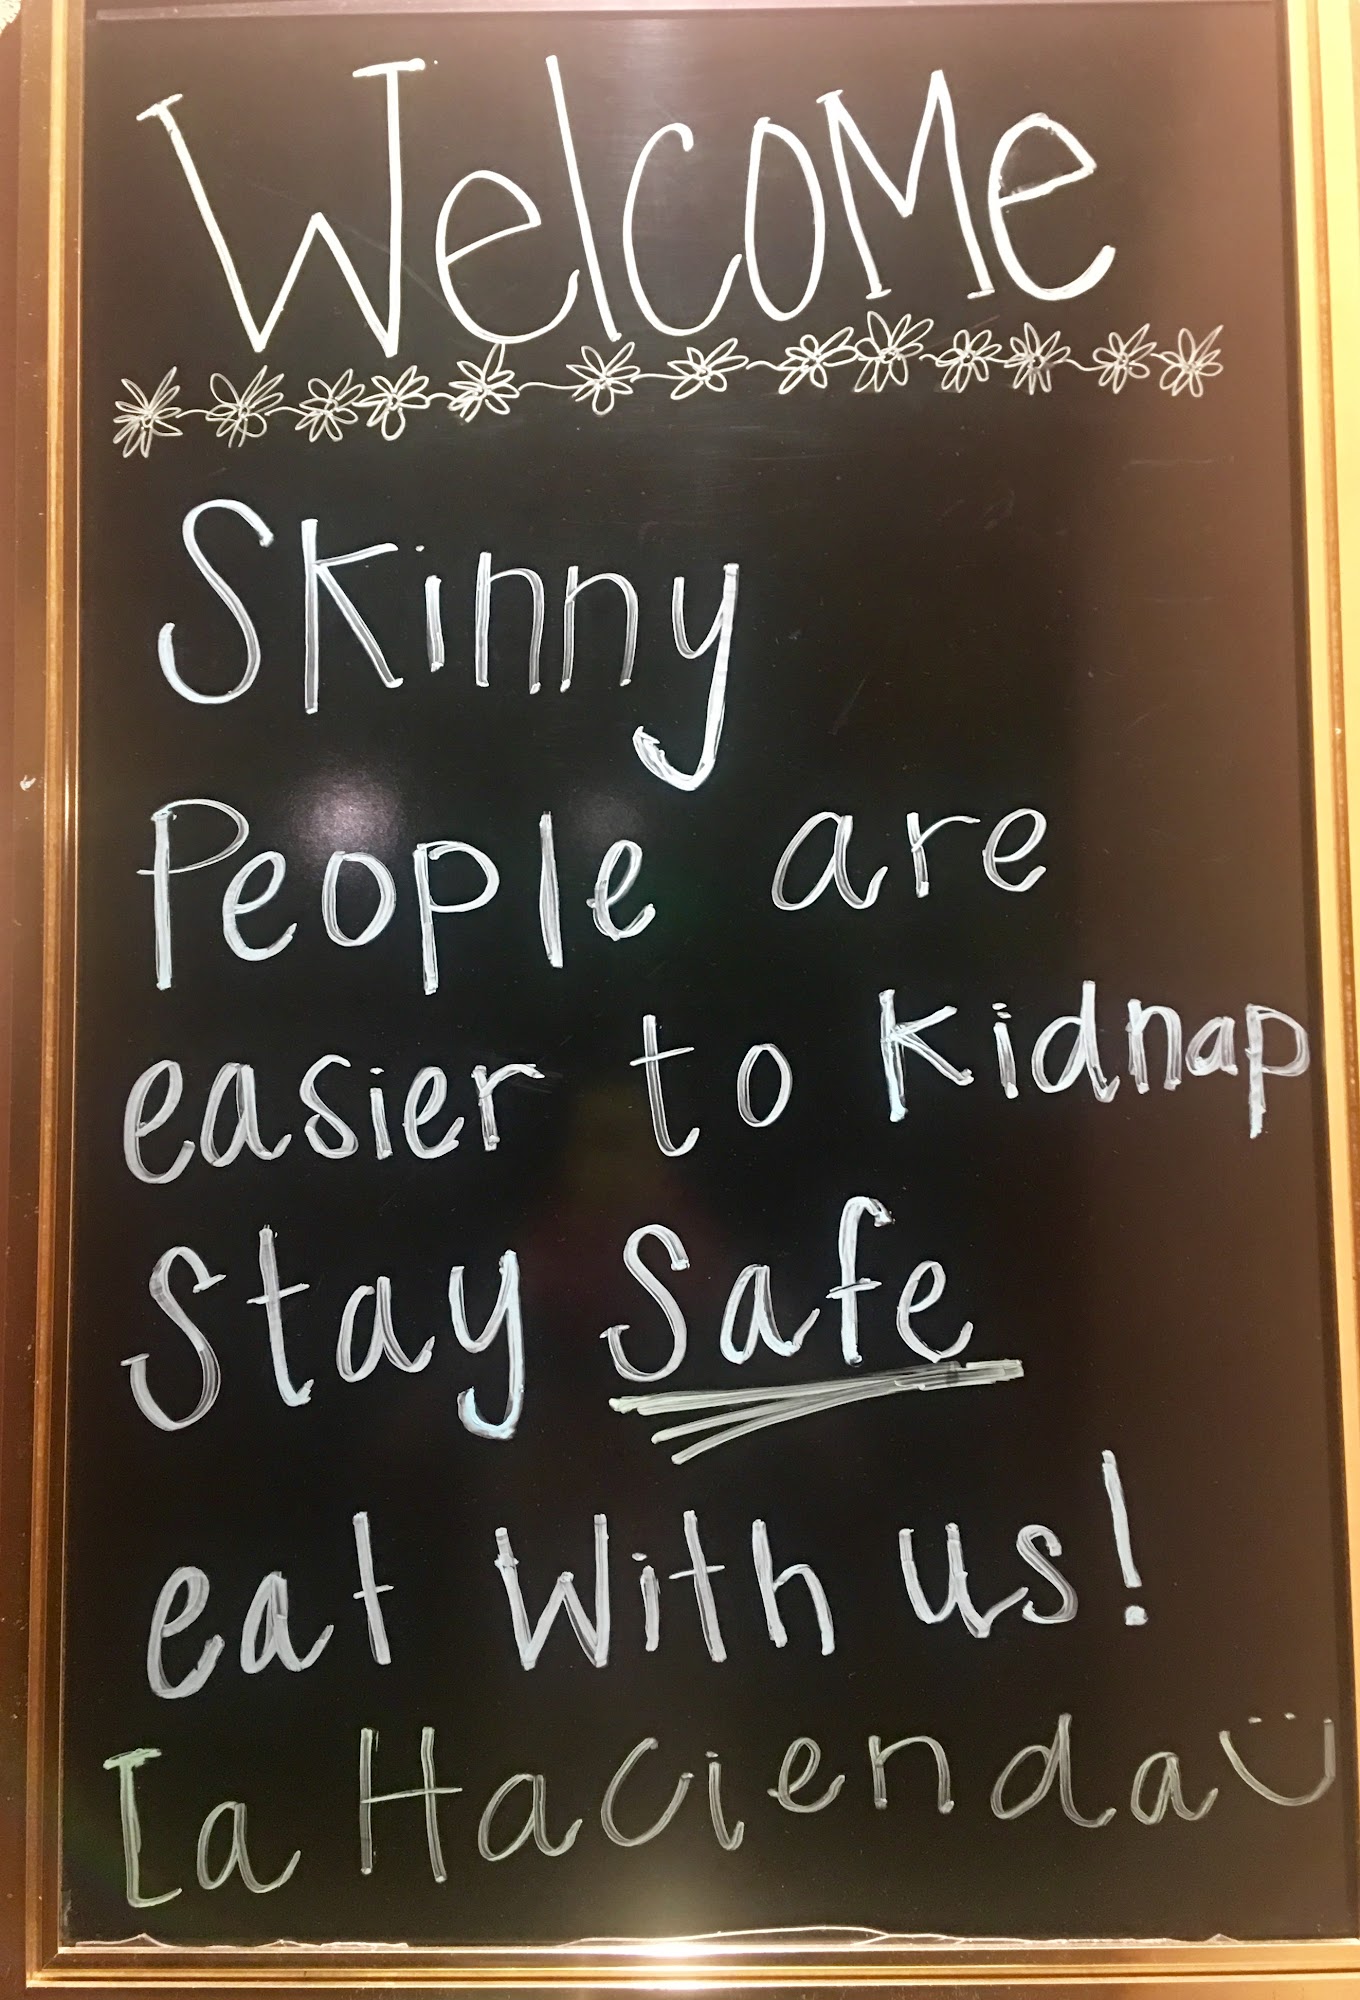 Welcome
Skinny
People are
easier to kidnap
Stay Safe
eat with us!
La Hacienda